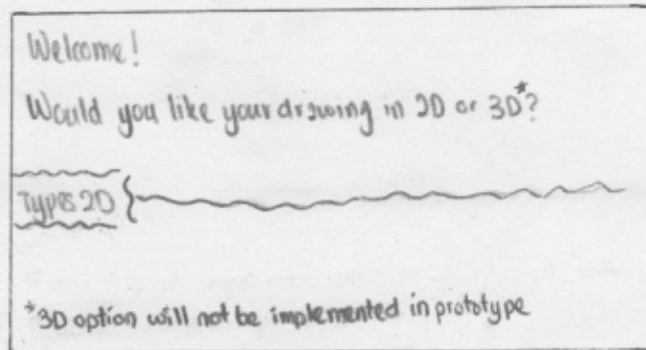 Welcome!
Would you like your drawing in 2D or 3D*?
Types 2D
*3D option will not be implemented in prototype